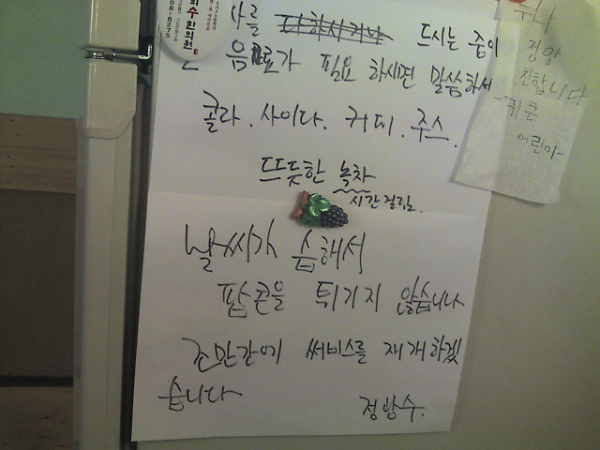 수한의원
사를 다하시거나 드시는 중이
음료가 필요 하시면 말씀하세
콜라. 사이다. 커피. 주스.
뜨듯한 녹차
시간걸림.
날씨가 습해서
팝콘을 튀기지 않습니다
조만간에 써비스를 재개하겠
습니다
정방수.
누나
정말
친합니다
-키 큰
어린이-